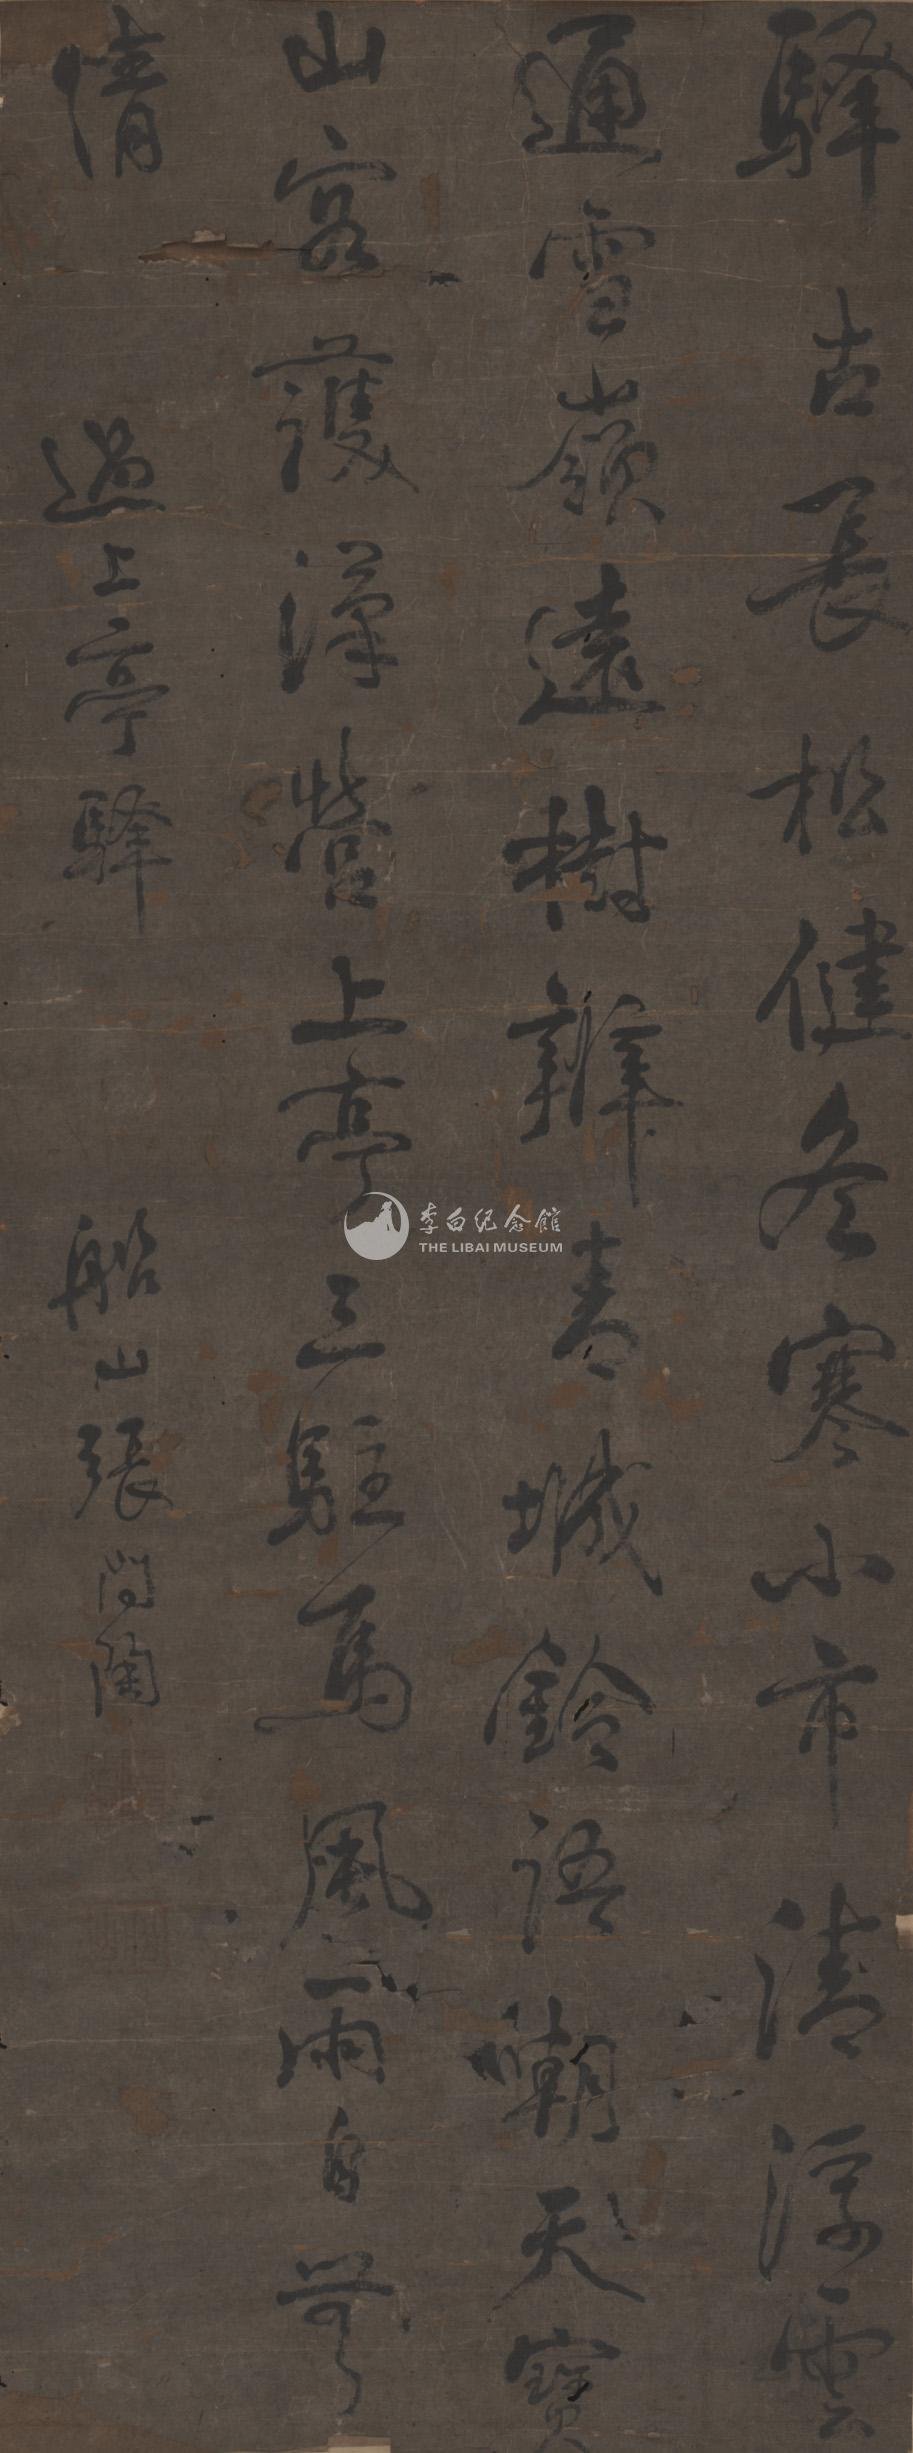 驛古長松健冬寒小市清浮雲
通雪嶺遠樹辨青城鈴語嘲天寶
山容護漢營上亭三駐馬風雨自
情 過上亭驛 船山張問陶
李白纪念館
THE LIBAI MUSEUM